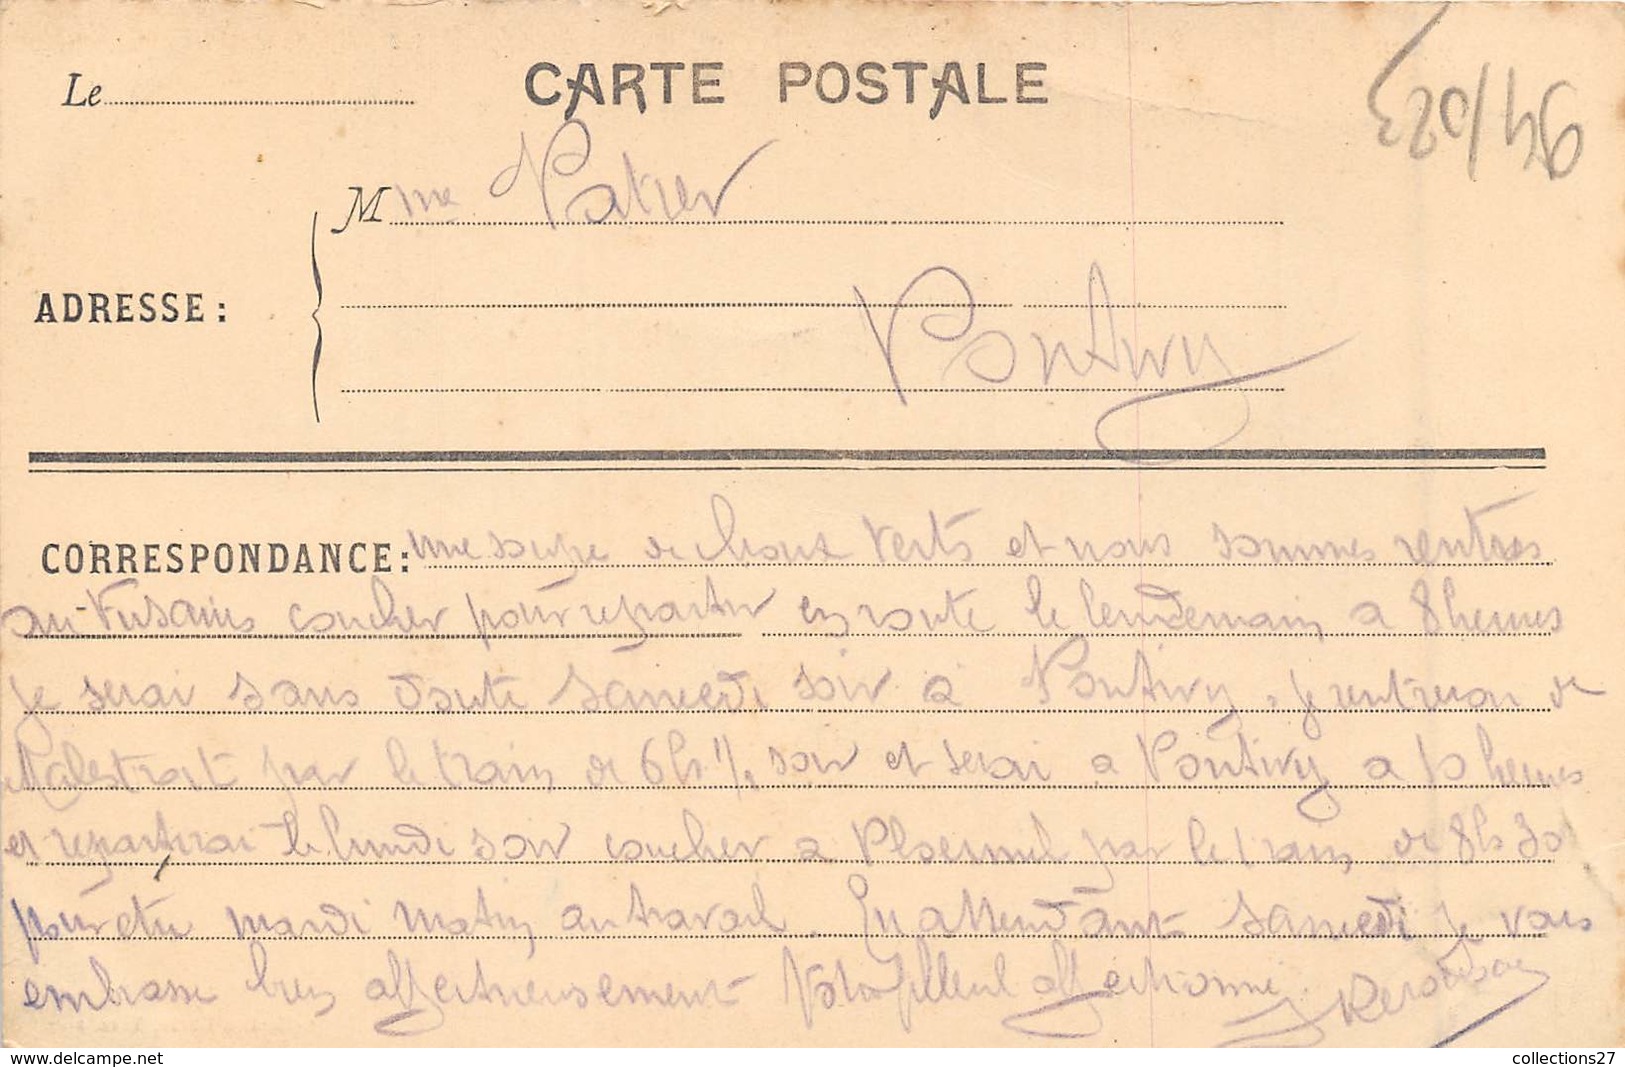 CARTE POSTALE
Le
94/023
Mme Patier
ADRESSE :
Pontivy
CORRESPONDANCE: une soupe de choux verts et nous sommes rentrés
au coucher pour repartir en route le lendemain a 8 heures
je serai sans doute samedi soir à Pontivy, je rentrerai de
Malestroit par le train de 6h 1/2 soir et serai a Pontivy a 10 heures
et repartirai le lundi soir coucher a Ploermel par le train de 8h 30
pour être mardi matin au travail. En attendant samedi je vous
embrasse bien affectueusement Votre filleul affectionné
collections27
www.delcampe.net